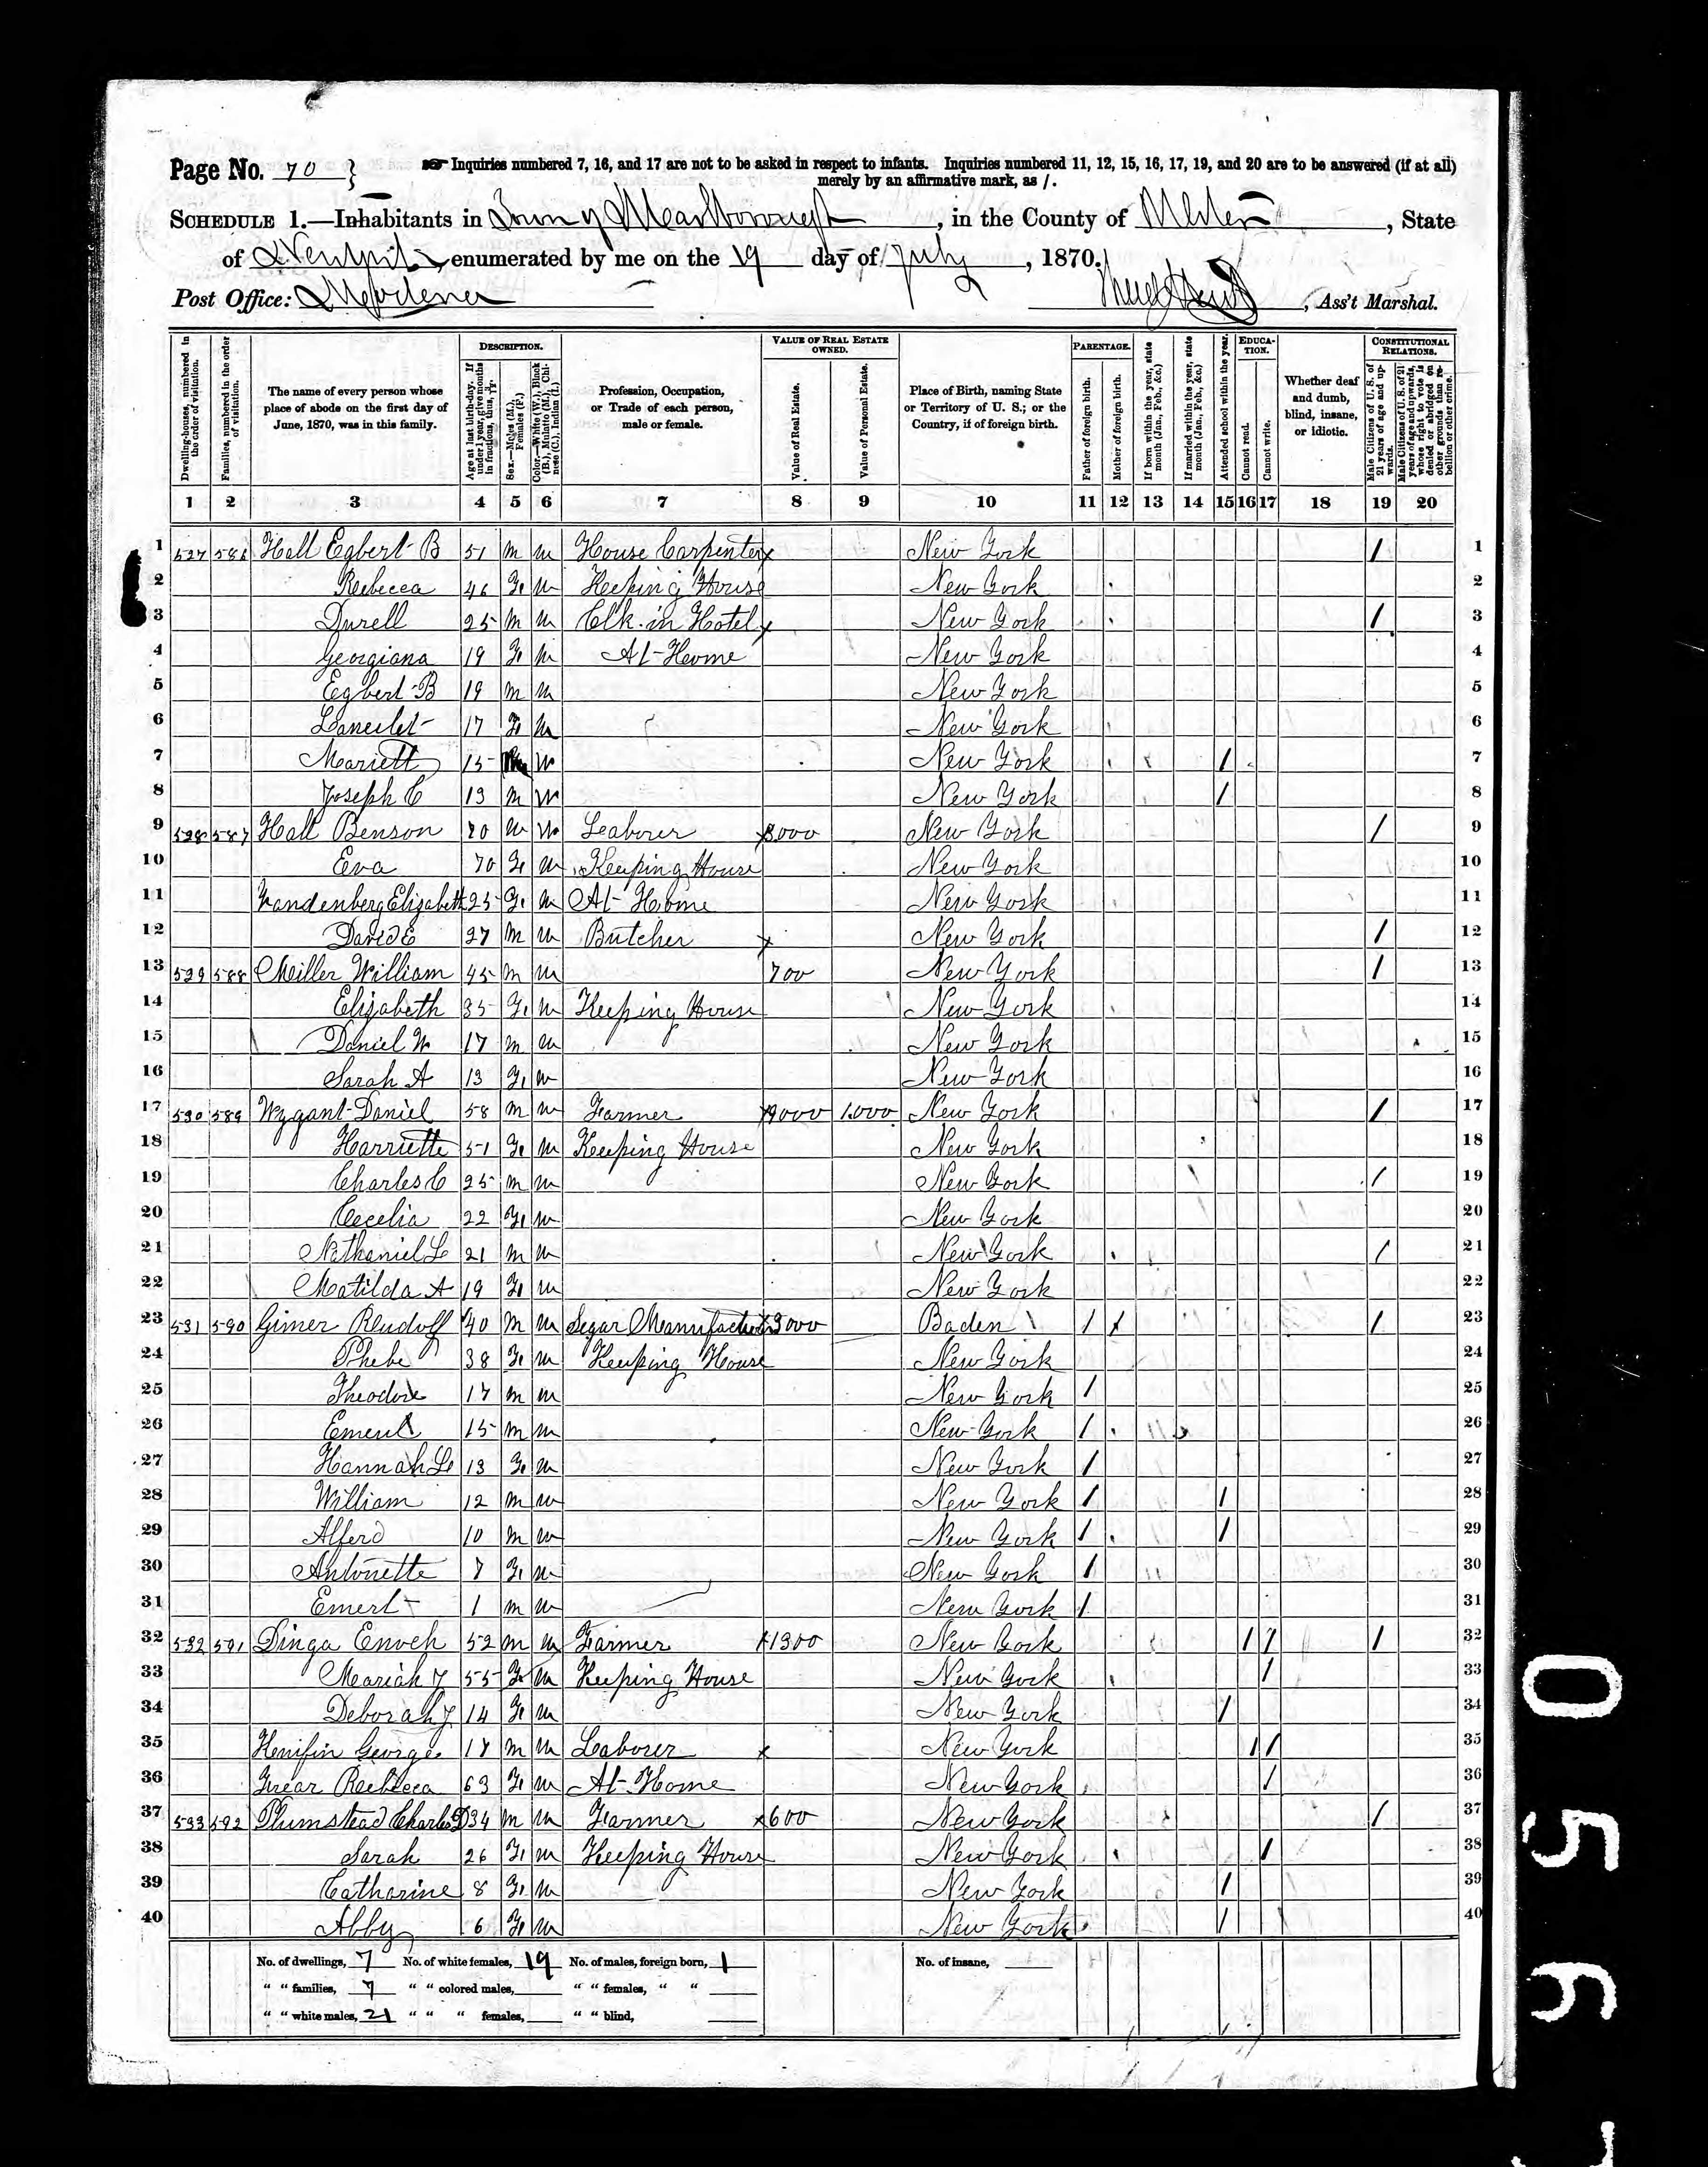 Page No. 70 } Inquiries numbered 7, 16, and 17 are not to be asked in respect to infants. Inquiries numbered 11, 12, 15, 16, 17, 19, and 20 are to be answered (if at all)
merely by an affirmative mark, as /.
SCHEDULE 1.—Inhabitants in Town of Marlborough, in the County of Ulster, State
of New York, enumerated by me on the 19 day of July, 1870.
Post Office: Modena , Ass't Marshal.
Dwelling-houses, numbered in the order of visitation.
Families, numbered in the order of visitation.
The name of every person whose place of abode on the first day of June, 1870, was in this family.
DESCRIPTION.
Age at last birth-day. If under 1 year, give months in fractions, thus, 3/12.
Sex.—Males (M.), Females (F.)
Color.—White (W.), Black (B.), Mulatto (M.), Chinese (C.), Indian (I.)
Profession, Occupation, or Trade of each person, male or female.
VALUE OF REAL ESTATE OWNED.
Value of Real Estate.
Value of Personal Estate.
Place of Birth, naming State or Territory of U. S.; or the Country, if of foreign birth.
PARENTAGE.
Father of foreign birth.
Mother of foreign birth.
If born within the year, state month (Jan., Feb., &c.)
If married within the year, state month (Jan., Feb., &c.)
Attended school within the year.
EDUCATION.
Cannot read.
Cannot write.
Whether deaf and dumb, blind, insane, or idiotic.
CONSTITUTIONAL RELATIONS.
Male Citizens of U. S. of 21 years of age and upwards.
Male Citizens of U. S. of 21 years of age and upwards, whose right to vote is denied or abridged on other grounds than rebellion or other crime.
1 2 3 4 5 6 7 8 9 10 11 12 13 14 15 16 17 18 19 20
1 527 586 Hall Egbert B 51 m w House Carpenter x New York / 1
2 Rebecca 46 F w Keeping House New York 2
3 Durell 25 m w Clk. in Hotel x New York / 3
4 Georgiana 19 F w At Home New York 4
5 Egbert B 19 m w New York 5
6 17 F w New York 6
7 Mariett 15 w New York / 7
8 Joseph C 13 m w New York / 8
9 528 587 Hall Benson 70 m w Leaborer x3000 New York / 9
10 Eva 70 F w Keeping House New York 10
11 Vandenberg Elizabeth 25 F w At Home New York 11
12 David E 27 m w Butcher x New York / 12
13 529 588 Miller William 45 m w 700 New York / 13
14 Elizabeth 35 F w Keeping House New York 14
15 Daniel W 17 m w New York 15
16 Sarah A 13 F w New York 16
17 530 589 Wygant Daniel 58 m w Farmer x9000 1000 New York / 17
18 Harriette 51 F w Keeping House New York 18
19 Charles C 25 m w New York / 19
20 Cecelia 22 F w New York 20
21 Nathaniel L 21 m w New York / 21
22 Matilda A 19 F w New York 22
23 531 590 Gimer Rudolf 40 m w Segar Manufacturer x3000 Baden / / / 23
24 Phebe 38 F w Keeping House New York 24
25 Theodore 17 m w New York / 25
26 15 m w New York / 26
27 Hannah L 13 F w New York / 27
28 William 12 m w New York / / 28
29 Alferd 10 m w New York / / 29
30 Antonette 7 F w New York / 30
31 Emert 1 m w New York / 31
32 532 591 Dinga Enoch 52 m w Farmer x1300 New York / / / 32
33 Mariah J 55 F w Keeping House New York / 33
34 Deborah J 14 F w New York / 34
35 Henifin George 17 m w Laborer x New York / / 35
36 Frear Rebecca 63 F w At Home New York / 36
37 533 592 Plumstead Charles D 34 m w Farmer x600 New York / 37
38 Sarah 26 F w Keeping House New York / 38
39 Catharine 8 F w New York / 39
40 Abby 6 F w New York / 40
No. of dwellings, 7 No. of white females, 19 No. of males, foreign born, 1 No. of insane,
" " families, 7 " " colored males, " " females, " "
" " white males, 21 " " " females, " " blind,
0556